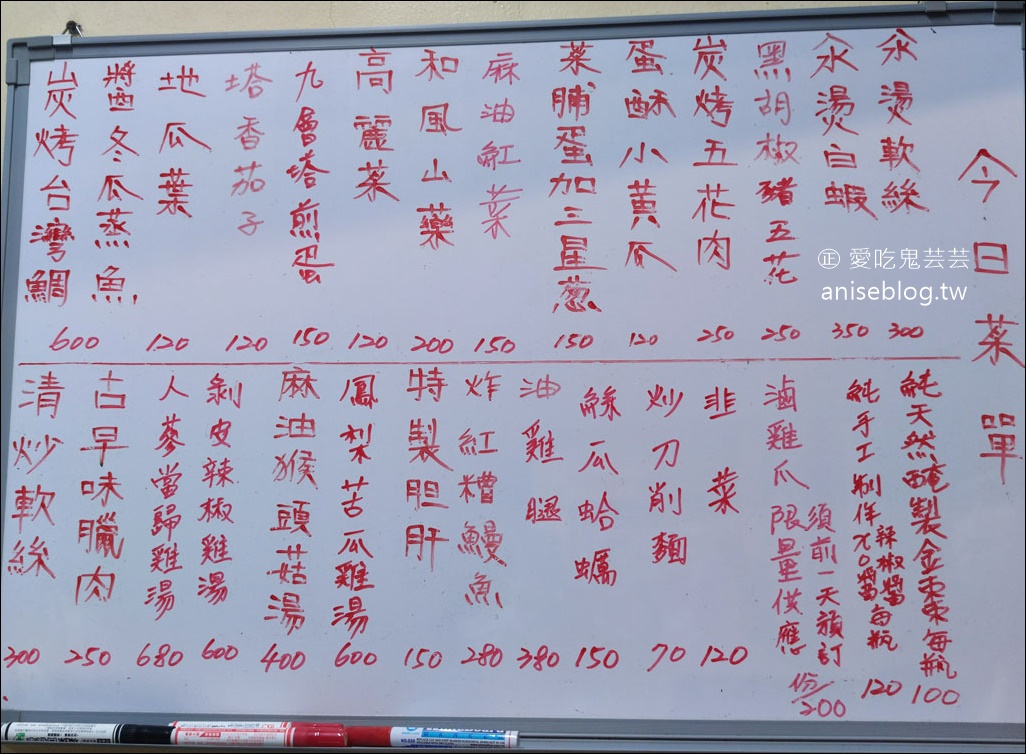 今日菜單
汆燙軟絲 300
汆燙白蝦 350
黑胡椒豬五花 250
炭烤五花肉 250
蛋酥小黃瓜 120
菜脯蛋加三星蔥 150
麻油紅菜 150
和風山藥 200
高麗菜 120
九層塔煎蛋 150
塔香茄子 120
地瓜葉 120
醬冬瓜蒸魚
炭烤台灣鯛
600
純天然醃製金棗每瓶 100
純手工制作XO醬每瓶 120
辣椒醬
滷雞爪限量供應
須前一天預訂
1份/200
韭菜 120
炒刀削麵 70
絲瓜蛤蠣 150
油雞腿 380
炸紅糟鰻魚 280
特製胆肝 150
鳳梨苦瓜雞湯 600
麻油猴頭菇湯 400
剝皮辣椒雞湯 600
人蔘當歸雞湯 680
古早味臘肉 250
清炒軟絲 300
正 愛吃鬼芸芸
aniseblog.tw